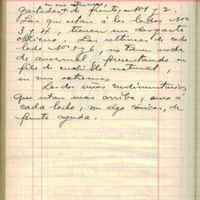 en sus extremos,
gastados de punta, en Nos 1 y 2.
Las que estan á los lados Nos
3 y 4, tienen un desgaste
oblicuo. Las últimas de cada
lado Nos 5 y 6, no tienen nada
de anormal presentando su
filo de cuchillo natural,
en sus extremos.
Las dos uñas rudimentarias
que estan mas arriba, una á
cada lado, son algo cónicas, de
punta aguda.